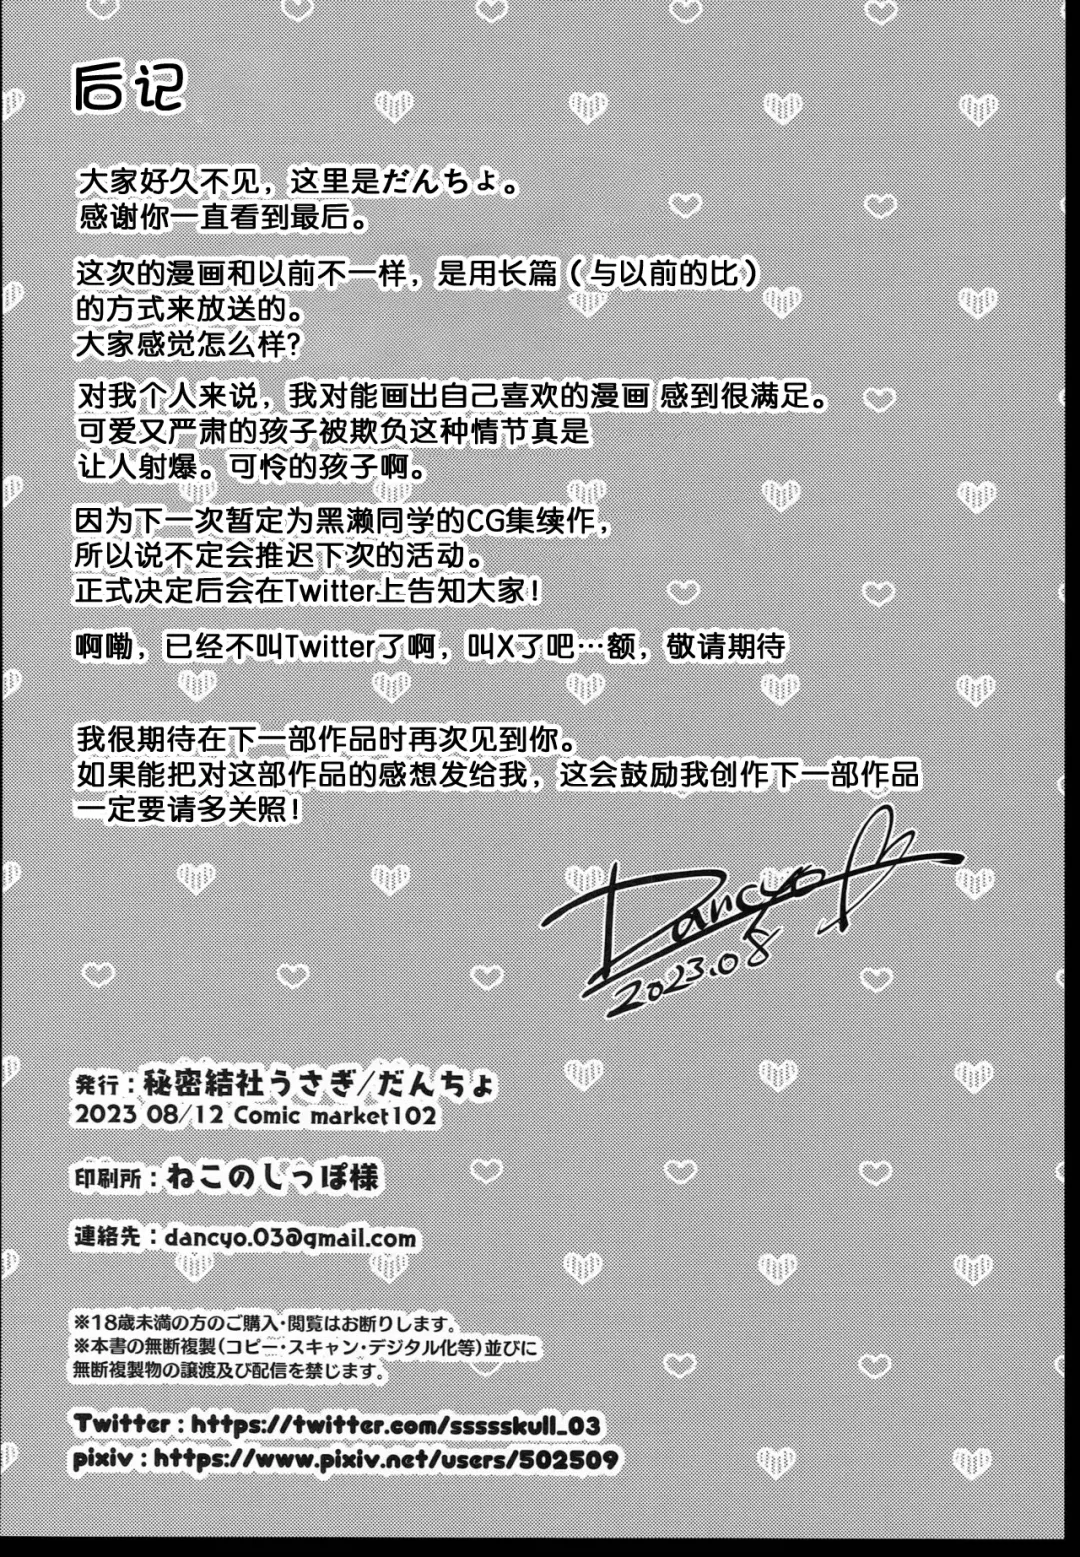 后记
大家好久不见，这里是だんちょ。
感谢你一直看到最后。
这次的漫画和以前不一样，是用长篇（与以前的比）
的方式来放送的。
大家感觉怎么样?
对我个人来说，我对能画出自己喜欢的漫画 感到很满足。
可爱又严肃的孩子被欺负这种情节真是
让人射爆。可怜的孩子啊。
因为下一次暂定为黑濑同学的CG集续作，
所以说不定会推迟下次的活动。
正式决定后会在Twitter上告知大家！
啊嘞，已经不叫Twitter了啊，叫X了吧…额，敬请期待
我很期待在下一部作品时再次见到你。
如果能把对这部作品的感想发给我，这会鼓励我创作下一部作品
一定要请多关照！
Dancyo
2023.08
発行：秘密結社うさぎ/だんちょ
2023 08/12 Comic market102
印刷所：ねこのしっぽ様
連絡先：dancyo.03@gmail.com
※18歳未満の方のご購入・閲覧はお断りします。
※本書の無断複製（コピー・スキャン・デジタル化等）並びに
無断複製物の譲渡及び配信を禁じます。
Twitter : https://twitter.com/sssssskull_03
pixiv : https://www.pixiv.net/users/502509